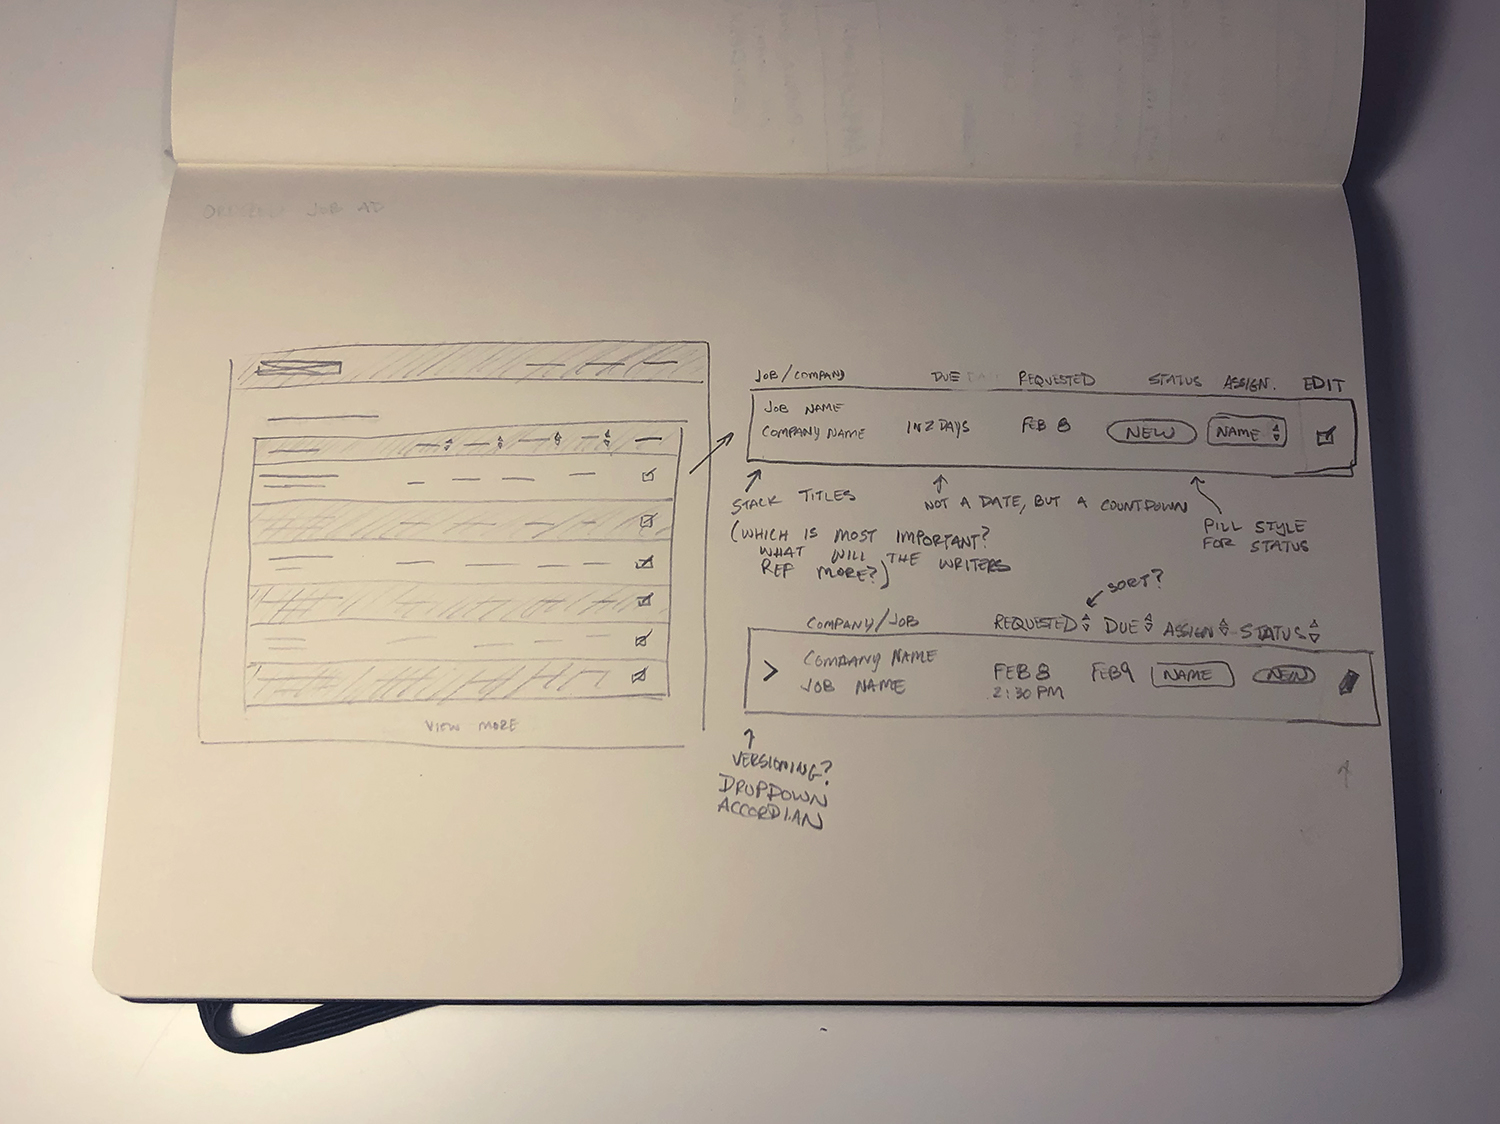 JOB AD
VIEW MORE
JOB/COMPANY DUE REQUESTED STATUS ASSIGN. EDIT
JOB NAME
COMPANY NAME IN 2 DAYS FEB 8 NEW NAME
STACK TITLES
(WHICH IS MOST IMPORTANT?
WHAT WILL THE WRITERS
REP MORE?)
NOT A DATE, BUT A COUNTDOWN
PILL STYLE
FOR STATUS
SORT?
COMPANY/JOB REQUESTED DUE ASSIGN STATUS
COMPANY NAME FEB 8 FEB 9 NAME NEW
JOB NAME 2:30 PM
VERSIONING?
DRUPDOWN
ACCORDIAN